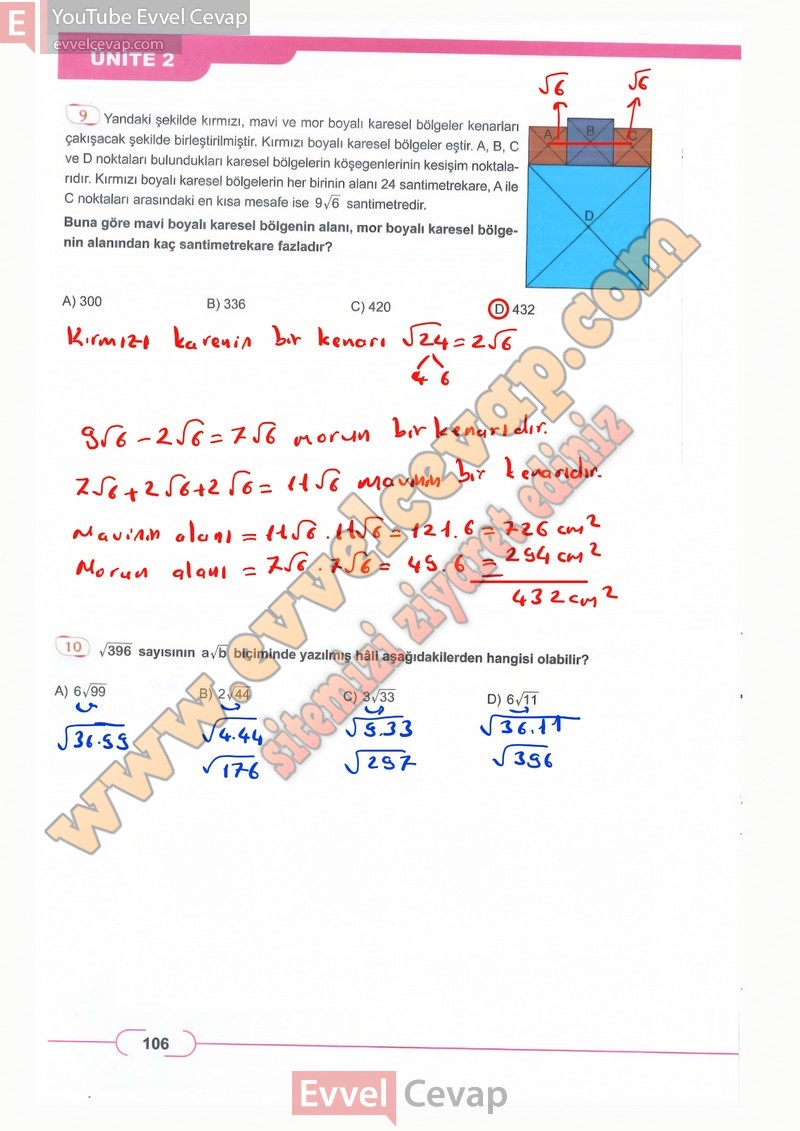 E YouTube Evvel Cevap
evvelcevap.com
ÜNİTE 2
√6 √6
9 Yandaki şekilde kırmızı, mavi ve mor boyalı karesel bölgeler kenarları
çakışacak şekilde birleştirilmiştir. Kırmızı boyalı karesel bölgeler eştir. A, B, C
ve D noktaları bulundukları karesel bölgelerin köşegenlerinin kesişim noktala-
rıdır. Kırmızı boyalı karesel bölgelerin her birinin alanı 24 santimetrekare, A ile
C noktaları arasındaki en kısa mesafe ise 9√6 santimetredir.
Buna göre mavi boyalı karesel bölgenin alanı, mor boyalı karesel bölge-
nin alanından kaç santimetrekare fazladır?
A B C
D
A) 300 B) 336 C) 420 D) 432
Kırmızı karenin bir kenarı √24 = 2√6
4 6
9√6 - 2√6 = 7√6 morun bir kenarıdır.
7√6 + 2√6 + 2√6 = 11√6 mavinin bir kenarıdır.
Mavinin alanı = 11√6 . 11√6 = 121.6 = 726 cm²
Morun alanı = 7√6 . 7√6 = 49.6 = 294 cm²
432 cm²
10 √396 sayısının a√b biçiminde yazılmış hâli aşağıdakilerden hangisi olabilir?
A) 6√99 B) 2√44 C) 3√33 D) 6√11
√36.99 √4.44 √9.33 √36.11
√176 √297 √396
www.evvelcevap.com
sitemizi ziyaret ediniz
106
Evvel Cevap